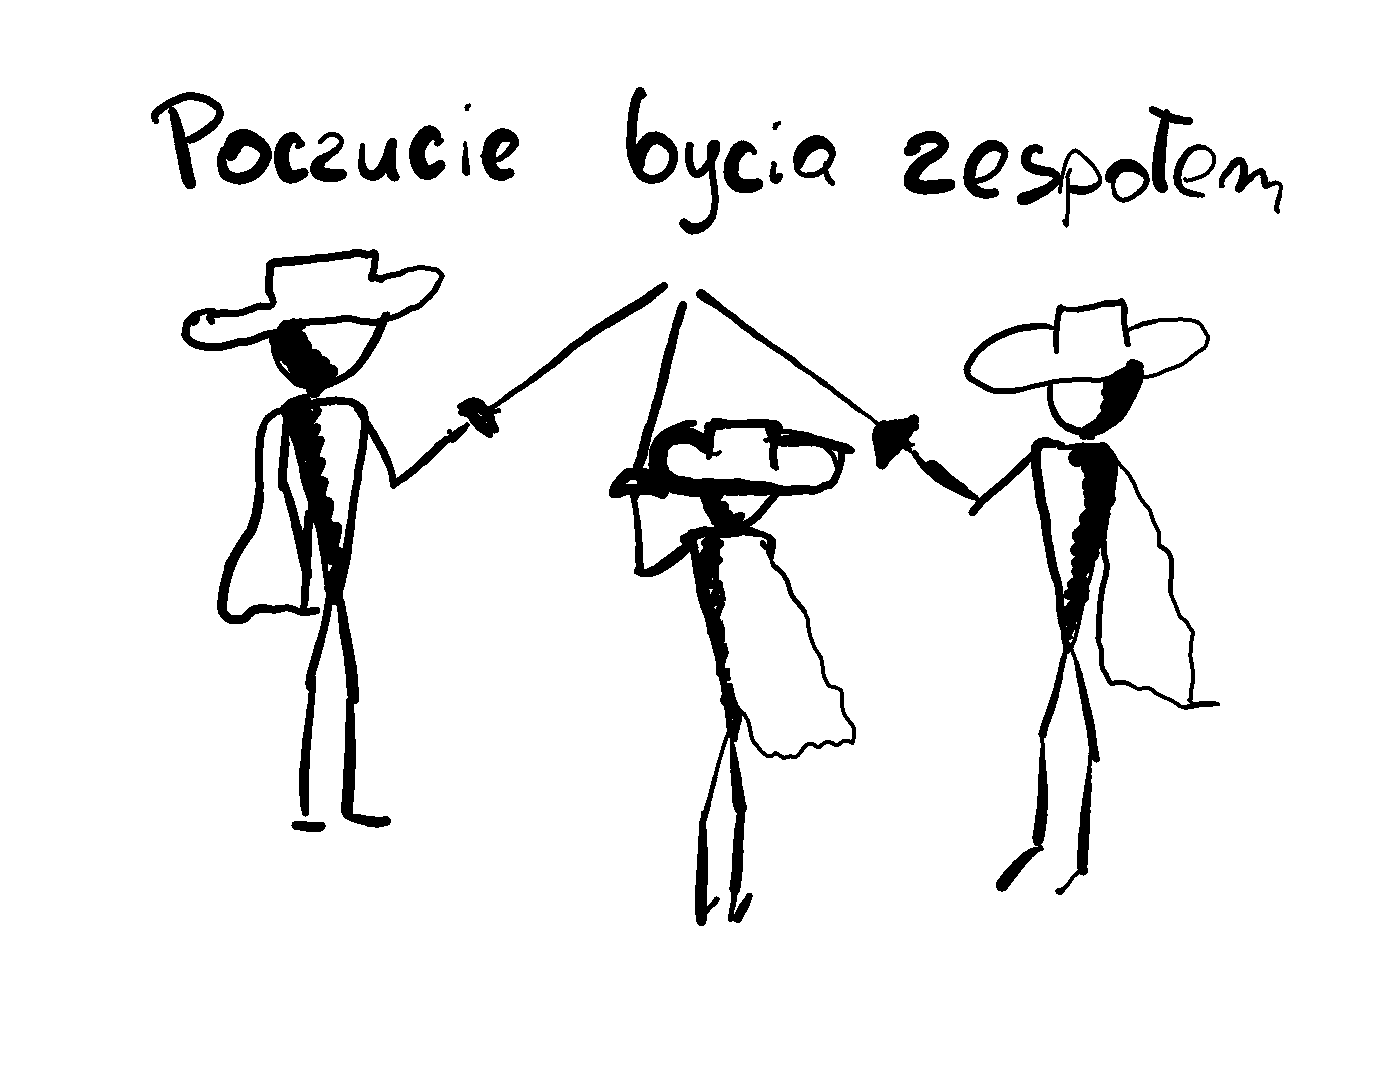 Poczucie bycia zespołem